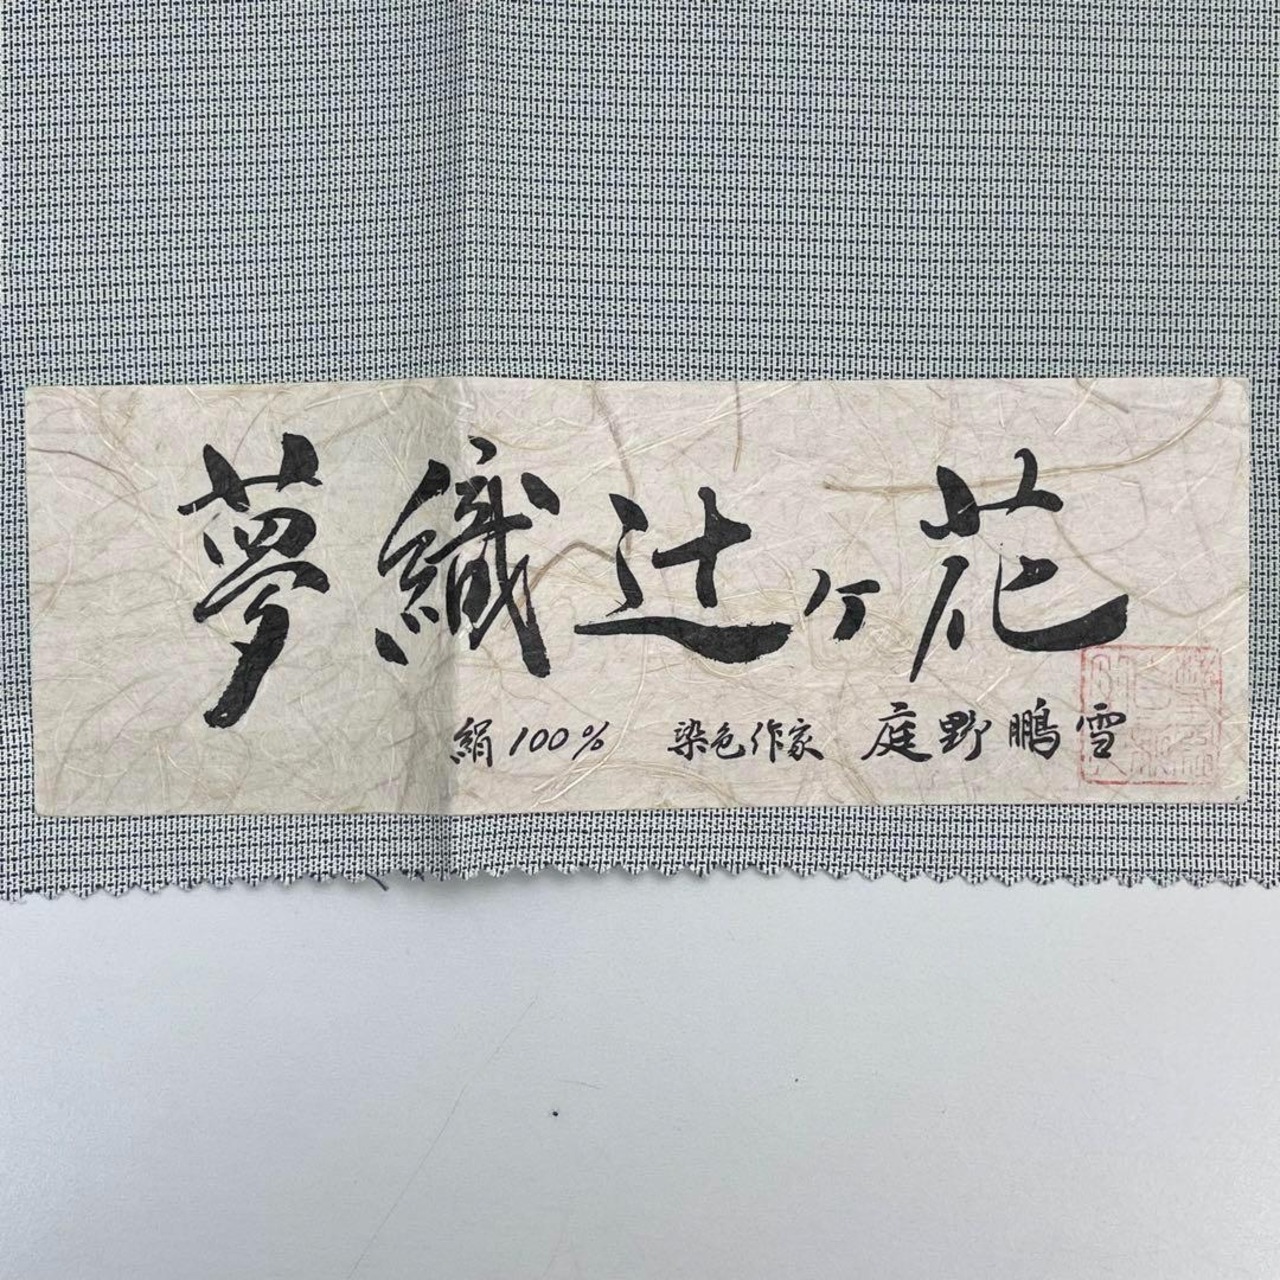 夢織辻ヶ花
絹100% 染色作家 庭野鵬雪